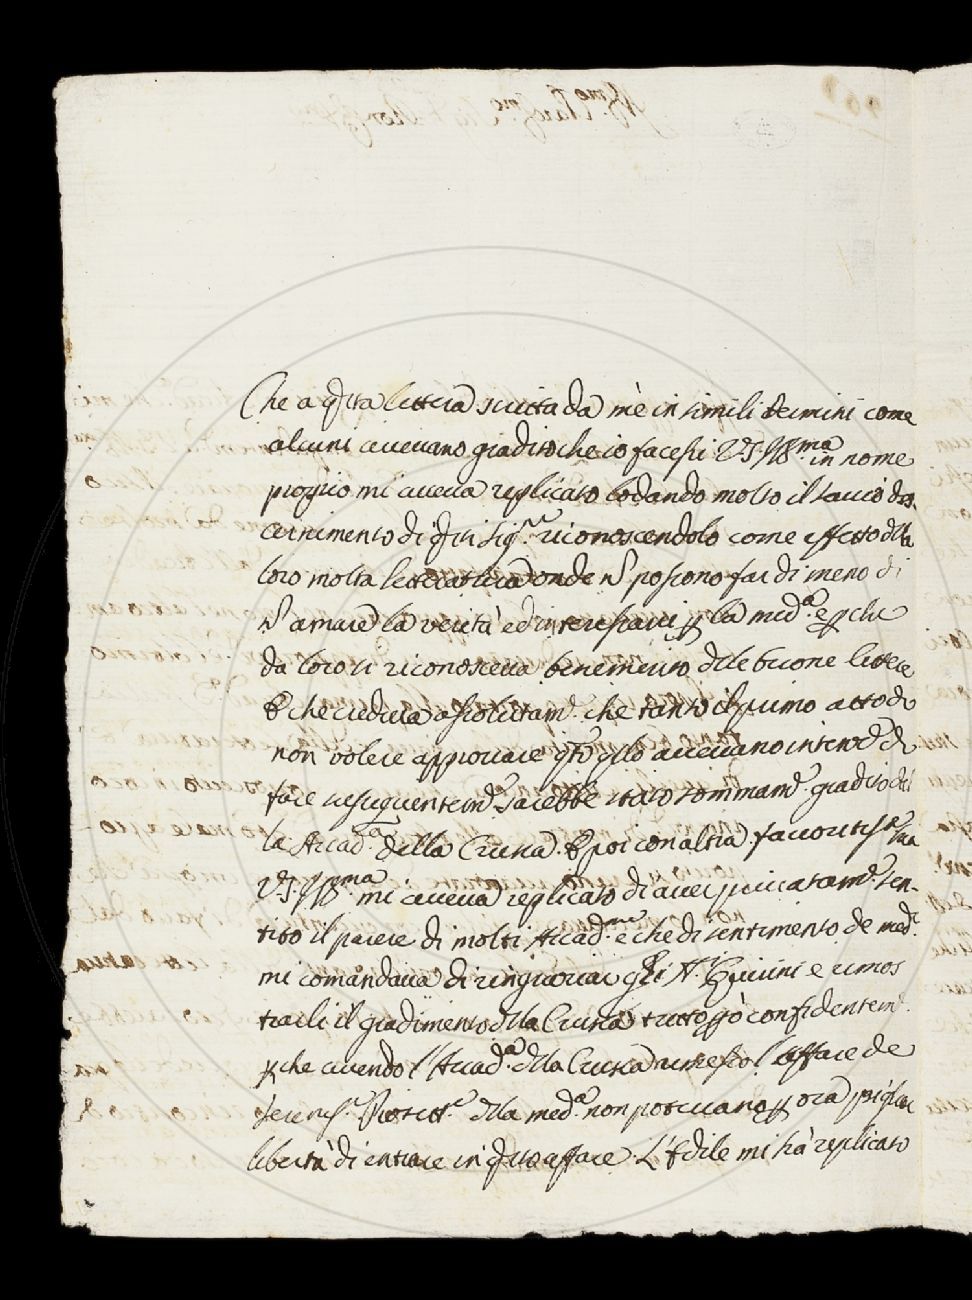 Che a q.sta lettera scritta da mè in simili termini come
alcuni avevano gradito che io facessi VS Ill.ma in nome
proprio mi aveva replicato lodando molto il savio dis-
cernimento di q.sti Sig.ri riconoscendolo come effetto d.lla
loro molta letteratura onde n. possono far di meno di
n. amare la verità ed interessarsi p. la med.a e p.che
da loro si riconosceva benemerito d.lle buone lettere
E che credeva assolutam.e che tanto il primo atto di
non volere approvare q.to q.llo avevano intenz.e di
fare susseguentem.e sarebbe stato sommam.e gradito dal
la Accad.a della Crusca. E poi con altra favoritiss.a sua
VS. Ill.ma mi aveva replicato di aver privatam.e sen-
tito il parere di molti Accad.mi e che di sentimento de med.i
mi comandava di ringraziar gli SS.ri e rimos
trarli il gradimento d.lla Crusca tutto ciò confidentem.e
p.che avendo l'Accad.a d.lla Crusca rimesso l'affare de
Sereniss.o Protett.e d.lla med.a non potevano p. ora pigliar
libertà di entrare in q.sto affare. L'Edile mi hà replicato